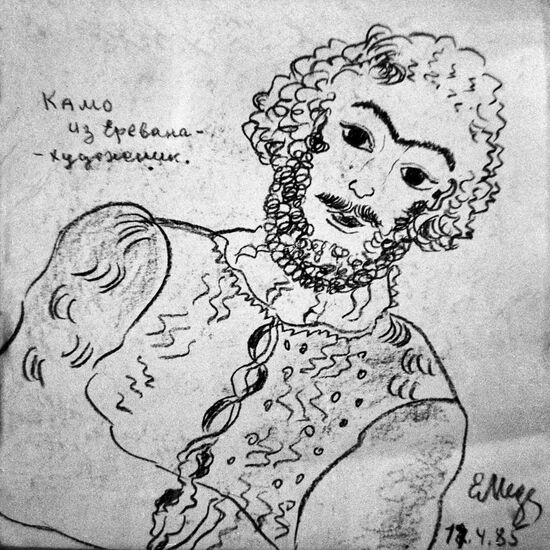 Камо
из Еревана-
-художник.
17.4.85